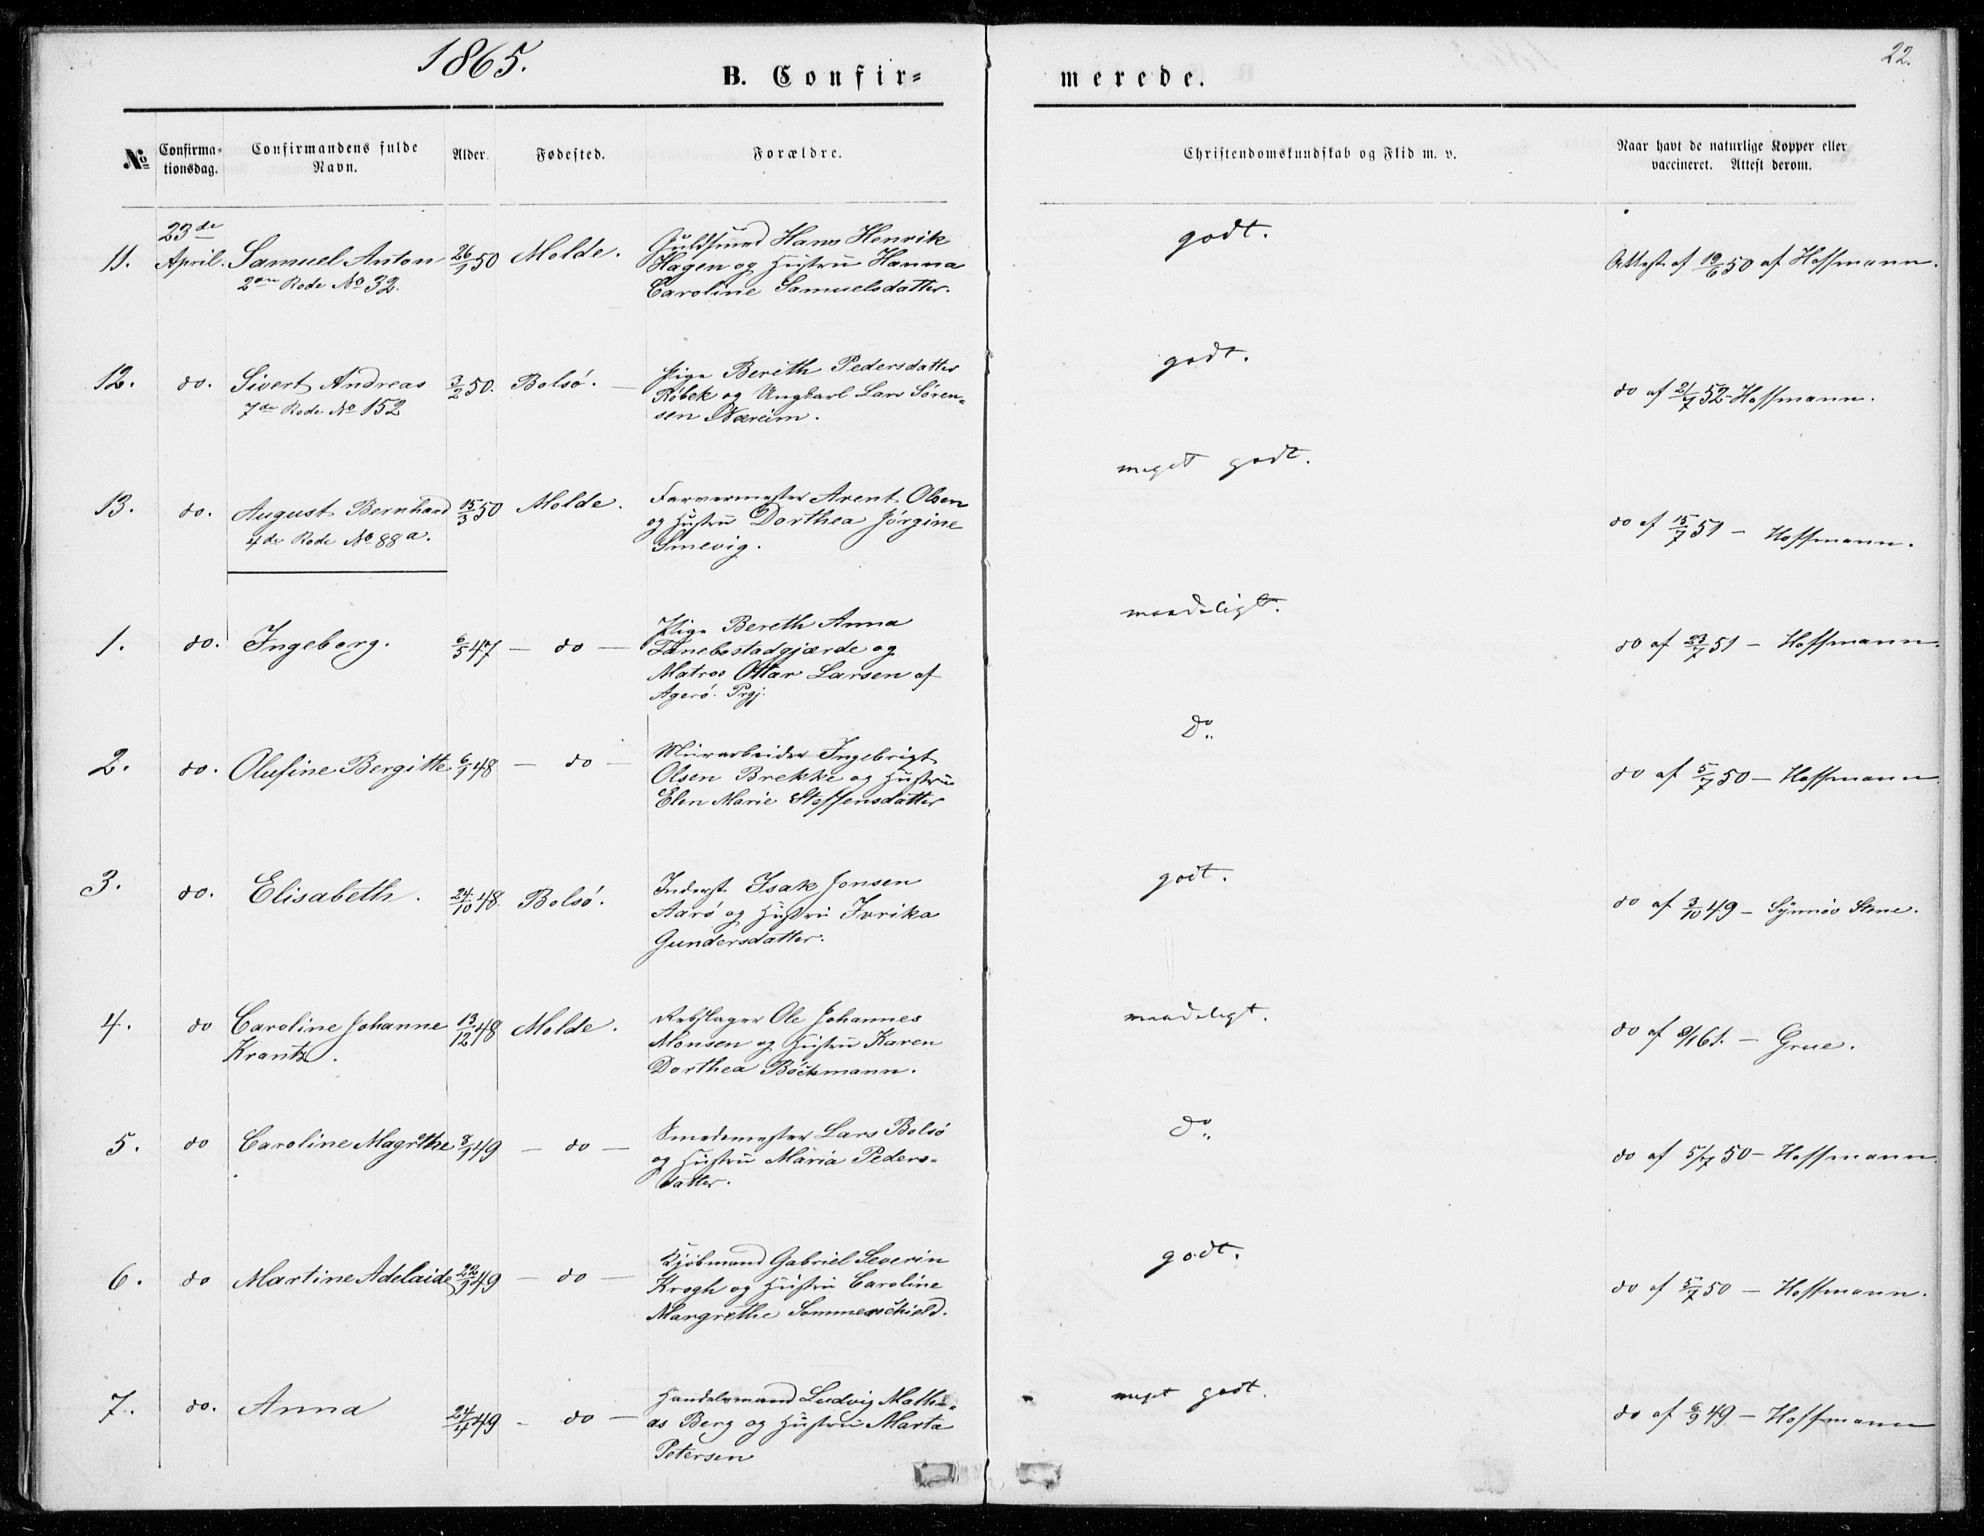 1865.
22.
B. Confir=
merede.
No
Confirma=
tionsdag.
Confirmandens fulde
Navn.
Alder.
Fødested.
Forældre.
Christendomskundskab og Flid m. v.
Naar havt de naturlige Kopper eller
vaccineret. Attest derom.
23de
11. April. Samuel Anton 26/1 50 Molde. Guldsmed Hans Henrik godt. Attest af 19/6 50 af Hoffmann.
2den Rode No 32. Hagen og Hustru Hanna
Caroline Samuelsdatter.
12. do. Sivert Andreas 3/2 50. Bolsö. — Pige Bereth Pedersdatter godt. do af 21/7 52 - Hoffmann.
7de Rode No 152 Røbek og Ungkarl Lars Søren-
sen Næreim.
13. do. August Bernhard 15/3 50 Molde. Farvermester Arent Olsen meget godt. do af 15/7 51 — Hoffmann.
4de Rode No 88a. og Hustru Dorthea Jørgine
Smevig.
1. do. Ingeborg. 6/5 47 — do — Pige Bereth Anna maadeligt. do af 23/7 51 — Hoffmann.
Fanebostadgjærde og
Matros Ottar Larsen af
Agerö. Prgj.
2. do. Olufine Bergitte 6/1 48 — do — Murarbeider Ingebrigt Do. do af 5/7 50 — Hoffmann
Olsen Brekke og Hustru
Elen Marie Steffensdatter
3. do. Elisabeth. 24/10 48. Bolsö. Inderst Isak Jonsen godt. do af 3/10 49 — Synnöv Stene.
Aarö og Hustru Ivrika
Gundersdatter.
4. do Caroline Johanne 13/12 48 Molde. Rebslager Ole Johannes maadeligt. do af 8/1 61. — Grue.
Krantz. Monsen og Hustru Karen
Dorthea Böckmann.
5. do Caroline Magrethe 8/1 49 — do — Smedemester Lars Bolsö do. do af 5/7 50 — Hoffmann.
og Hustru Maria Peders-
datter.
6. do Martine Adelaide 22/9 49 — do — Kjöbmand Gabriel Severin godt. do af 5/7 50 — Hoffmann.
Krogh og Hustru Caroline
Margrethe Sommerschield.
7. do. Anna 24/4 49 — do — Handelsmand Ludvig Mathi- meget godt. do af 6/9 49 — Hoffmann
as Berg og Hustru Marta
Petersen